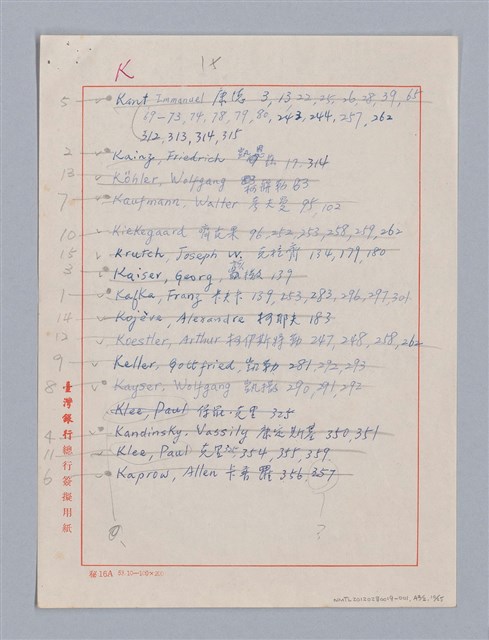 K
1x
5 Kant Immanuel 康德 3, 13, 22, 25, 26, 28, 39, 65
69-73, 74, 78, 79, 80, 243, 244, 257, 262
312, 313, 314, 315
2 Kainz, Friedrich 17, 314
13 Köhler, Wolfgang 63
7 Kaufmann, Walter 考夫曼 95, 102
10 Kiekegaard 齊克果 96, 252, 253, 258, 259, 262
15 Krutch, Joseph W. 134, 179, 180
3 Kaiser, Georg, 139
1 Kafka, Franz 卡夫卡 139, 253, 283, 296, 297, 301
14 Kojève, Alexandre 柯耶夫 183
12 Koestler, Arthur 柯伊斯特勒 247, 248, 258, 262
9 Keller, Gottfried, 凱勒 281, 292, 293
8 Kayser, Wolfgang 290, 291, 292
Klee, Paul 保羅·克里 325
4 Kandinsky, Vassily 康定斯基 350, 351
11 Klee, Paul 354, 355, 359
6 Kaprow, Allen 卡普羅 356, 357
?
臺灣銀行總行簽擬用紙
秘16A
NMTL20120280019-001